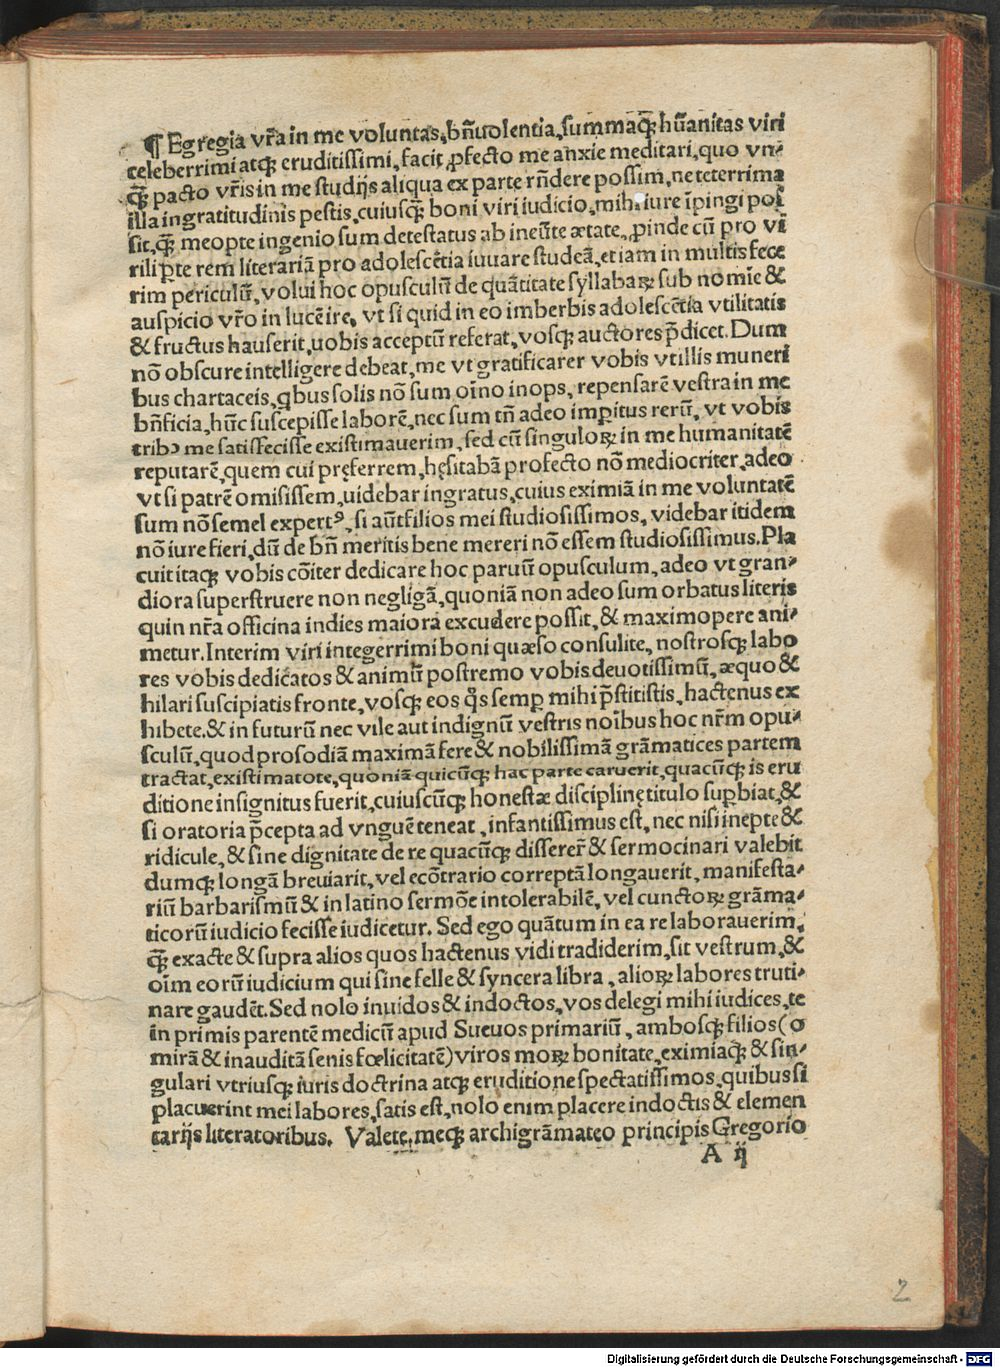 ¶ Egregia vr̃a in me voluntas, bñuolentia, summaq̃ꝫ hũanitas viri
celeberrimi atqꝫ eruditissimi, facit ꝓfecto me anxie meditari, quo vn⸗
q̃ꝫ pacto vr̃is in me studijs aliqua ex parte rñdere possim, ne teterrima
illa ingratitudinis pestis, cuiusq̃ꝫ boni viri iudicio, mihi iure ĩpingi pos
sit, q̃ꝫ meopte ingenio sum detestatus ab ineũte ætate, ꝓinde cũ pro vi
rili p̱te rem literariã pro adolescẽtia iuuare studeã, etiam in multis fece
rim periculũ, volui hoc opusculũ de quãtitate syllabaꝝ sub nomĩe &
auspicio vr̃o in lucẽ ire, vt si quid in eo imberbis adolescẽtia vtilitatis
& fructus hauserit, uobis acceptũ referat, vosqꝫ auctores p̃dicet. Dum
nõ obscure intelligere debeat, me vt gratificarer vobis vt illis muneri
bus chartaceis, q̃bus solis nõ sum oĩno inops, repensarẽ vestra in me
bñficia, hũc suscepisse laborẽ, nec sum tñ adeo imp̱itus rerũ, vt vobis
tribꝰ me satisfecisse existimauerim, sed cũ singuloꝝ in me humanitatẽ
reputarẽ, quem cui pręferrem, hęsitabã profecto nõ mediocriter, adeo
vt si patrẽ omisissem, uidebar ingratus, cuius eximiã in me voluntatẽ
sum nõ semel expertꝰ, si aũt filios mei studiosissimos, videbar itidem
nõ iure fieri, dũ de bñ meritis bene mereri nõ essem studiosissimus. Pla
cuit itaqꝫ vobis cõiter dedicare hoc paruũ opusculum, adeo vt gran⸗
diora superstruere non negligã, quoniã non adeo sum orbatus literis
quin nr̃a officina indies maiora excudere possit, & maximopere ani⸗
metur. Interim viri integerrimi boni quæso consulite, nostrosqꝫ labo
res vobis dedicatos & animũ postremo vobis deuotissimũ, æquo &
hilari suscipiatis fronte, vosqꝫ eos q̃s semp̱ mihi p̃stitistis, hactenus ex
hibete, & in futurũ nec vile aut indignũ vestris noĩbus hoc nr̃m opu⸗
sculũ, quod prosodiã maximã fere & nobilissimã grãmatices partem
tractat, existimatote, quoniã quicũqꝫ hac parte caruerit, quacũqꝫ is eru
ditione insignitus fuerit, cuiuscũqꝫ honestæ disciplinę titulo sup̱biat, &
si oratoria p̃cepta ad vnguẽ teneat, infantissimus est, nec nisi inepte &
ridicule, & sine dignitate de re quacũqꝫ disserer̃ & sermocinari valebit
dumqꝫ longã breuiarit, vel ecõtrario correptã longauerit, manifesta⸗
riũ barbarismũ & in latino sermõe intolerabilẽ, vel cunctoꝝ grãma⸗
ticorũ iudicio fecisse iudicetur. Sed ego quãtum in ea re laborauerim,
q̃ꝫ exacte & supra alios quos hactenus vidi tradiderim, sit vestrum, &
oĩm eorũ iudicium qui sine felle & syncera libra, alioꝝ labores truti⸗
nare gaudẽt. Sed nolo inuidos & indoctos, vos delegi mihi iudices, te
in primis parentẽ medicũ apud Sueuos primariũ, ambosqꝫ filios (o
mirã & inauditã senis fœlicitatẽ) viros moꝝ bonitate, eximiaqꝫ & sin⸗
gulari vtriusqꝫ iuris doctrina atqꝫ eruditione spectatissimos, quibus si
placuerint mei labores, satis est, nolo enim placere indoctis & elemen
tarijs literatoribus. Valete, meqꝫ archigrãmateo principis Gregorio
A ij
2
Digitalisierung gefördert durch die Deutsche Forschungsgemeinschaft - DFG